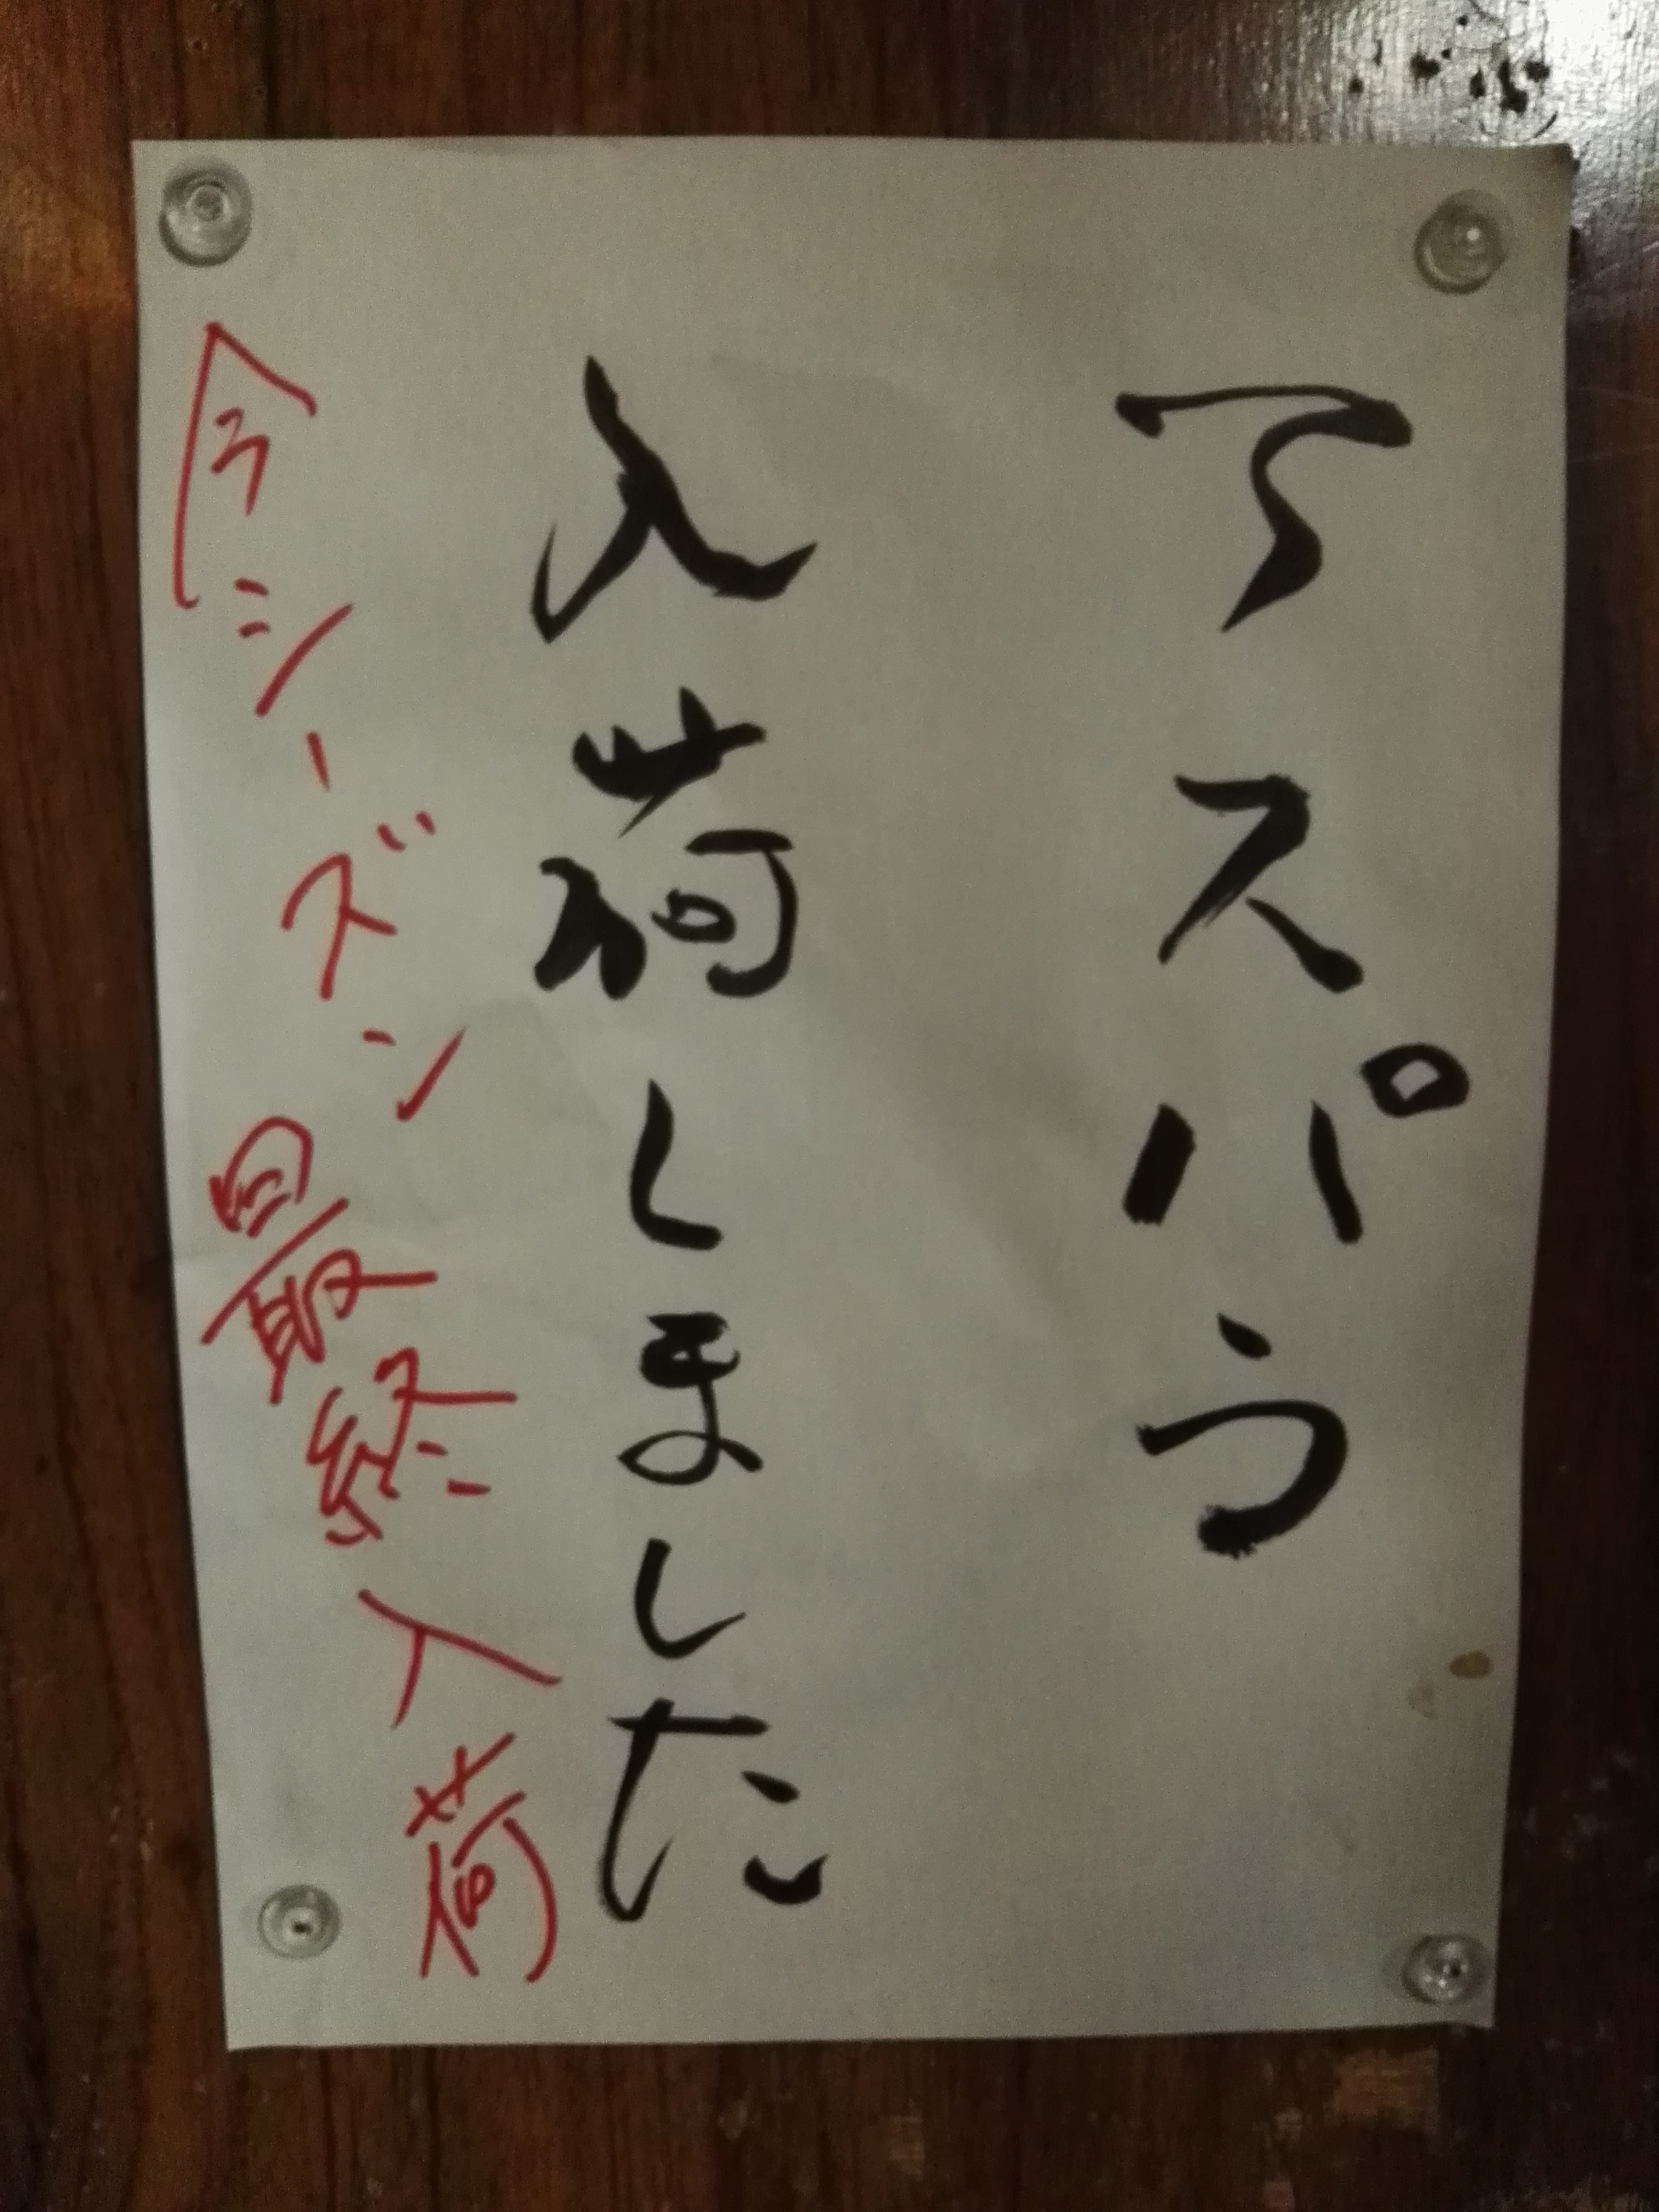 アスパラ
入荷しました
今シーズン最終入荷